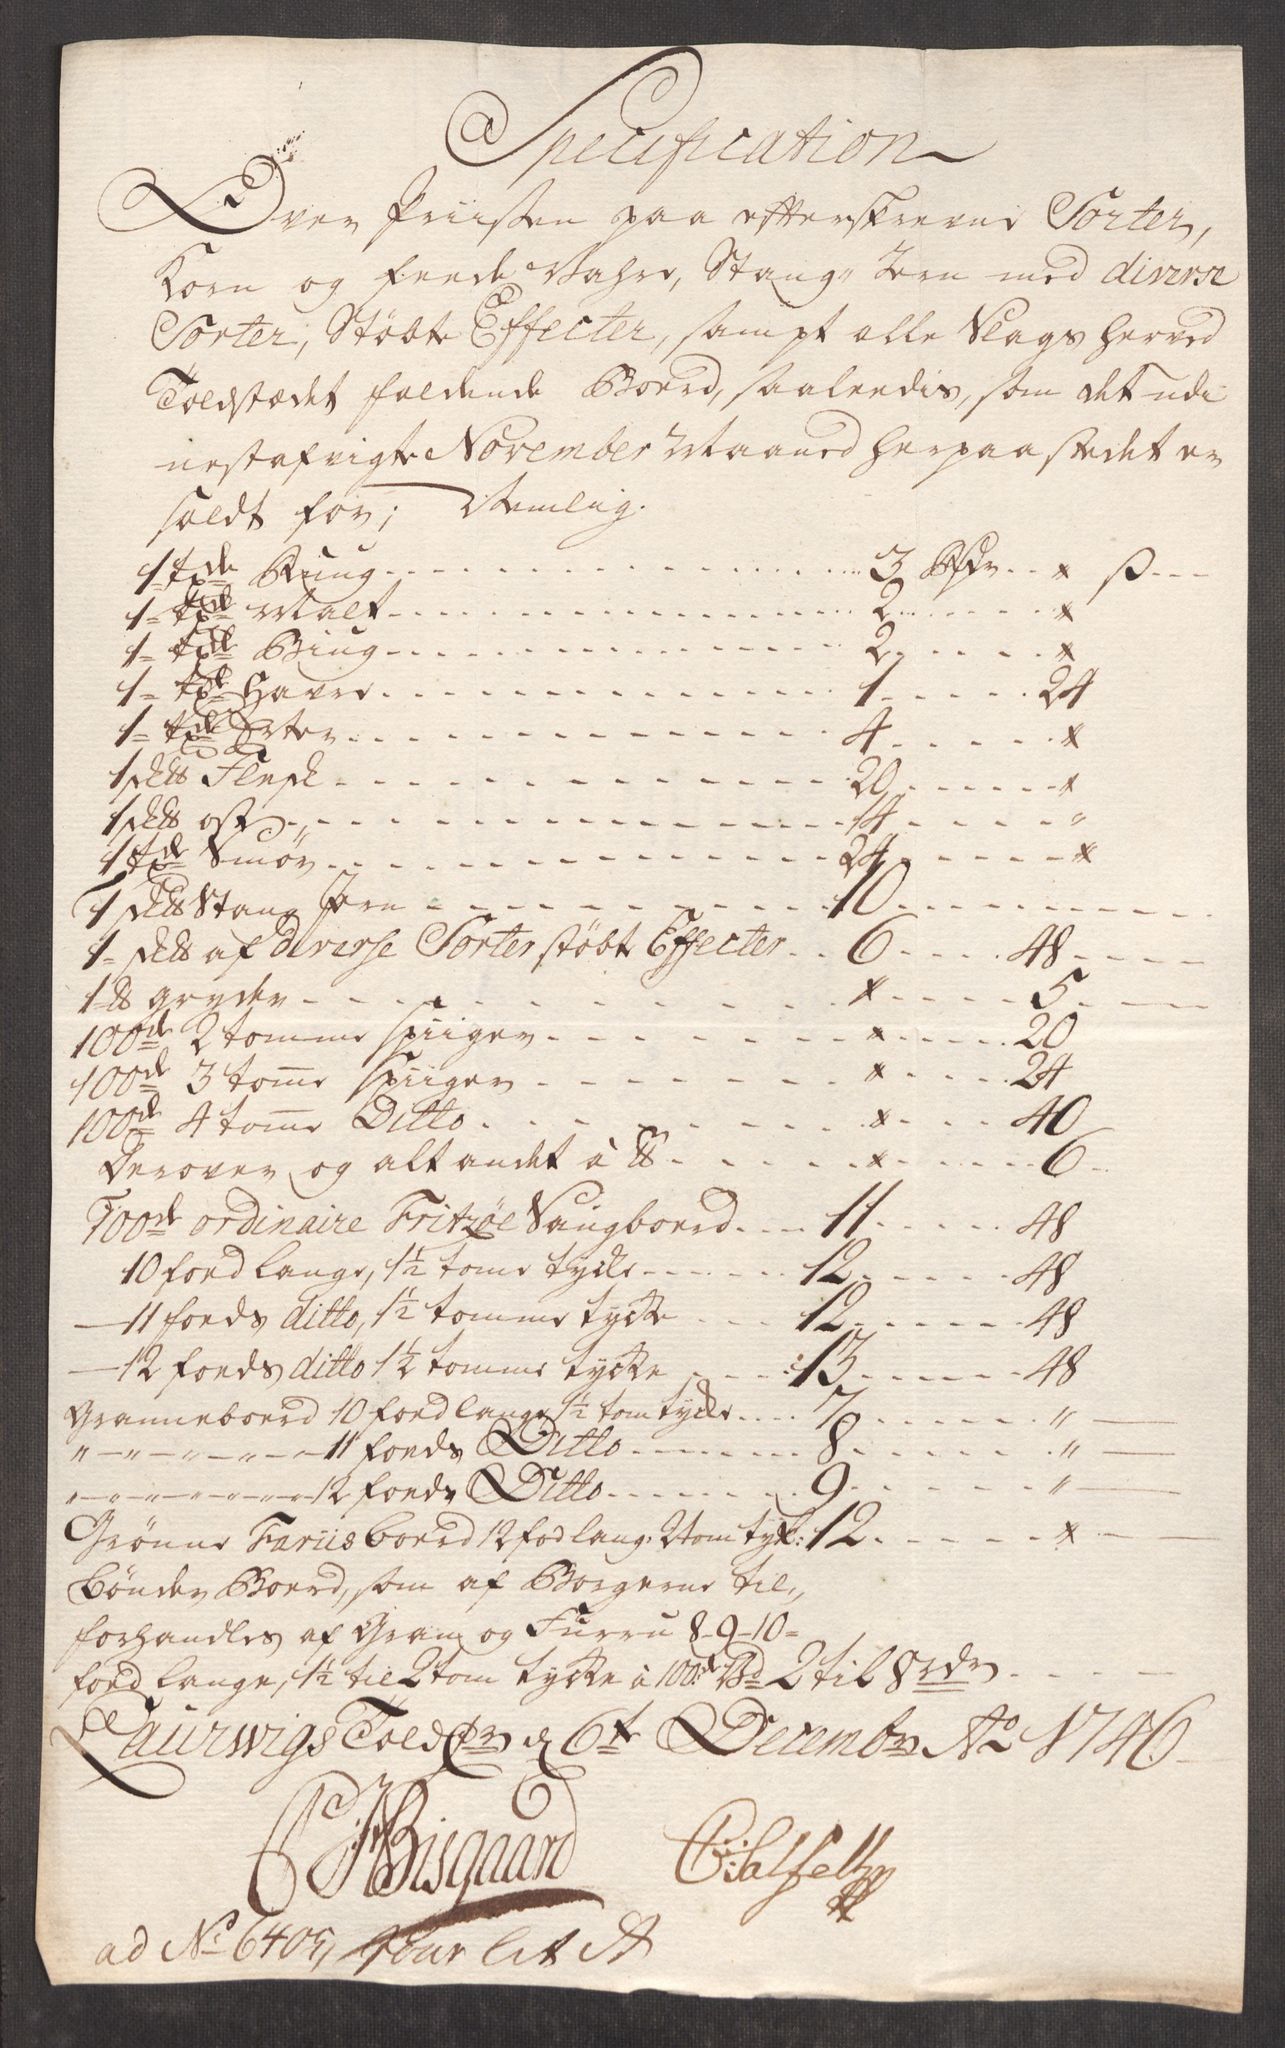 Specification
Over Priissen paa efterskrevne Sorter,
Korn og feede Vahre, Stang Jern med diverse
Sorter, Støbte Effecter, sampt alle Slags herved
Toldstædet faldende Boerd, saaleedis, som det udi
nestafvigte November Maaned herpaastedet er
soldt for; Nemlig.
1 tde Rug 3 Rdr x ß
1 tde Malt 2 x
1 tde Biug 2 x
1 tde Havre 1 24
1 tde Erter 4 x
1 sk℔ Flesk 20 x
1 sk℔ ost 14 "
1 tde Smør 24 x
1 sk℔ Stang Jern 10
1 sk℔ af diverse Sorter støbte Effecter 6 48
1 ℔ gryder x 5
100de 2 tomme Spiiger x 20
100de 3 tome Spiiger x 24
100de 4 tome Ditto x 40
Derover og alt andet à ℔ x 6
100de ordinaire Fritzøe Saugboerd 11 48
10 foed lange, 1½ tome tycke 12 48
11 foeds ditto, 1½ tomme tycke 12 48
12 foeds ditto 1½ tomme tycke 13 48
Granneboerd 10 foed lange 1½ tom tycke 7 "
" " " " " 11 foeds Ditto 8 "
" " " " " 12 foeds Ditto 9 "
Grønne Fariis boerd 12 fod lang: 2 tom tyk: 12 x
bønder Boerd, som af Borgerne til
forhandles af Gran og Furru 8-9-10=
foed lange, 1½ til 2 tom tycke à 100de Bd 2 til 8 rdr
Laurwigs Told den 6te Decembr Ao 1746
Bisgaard
ad No 6405, lit A